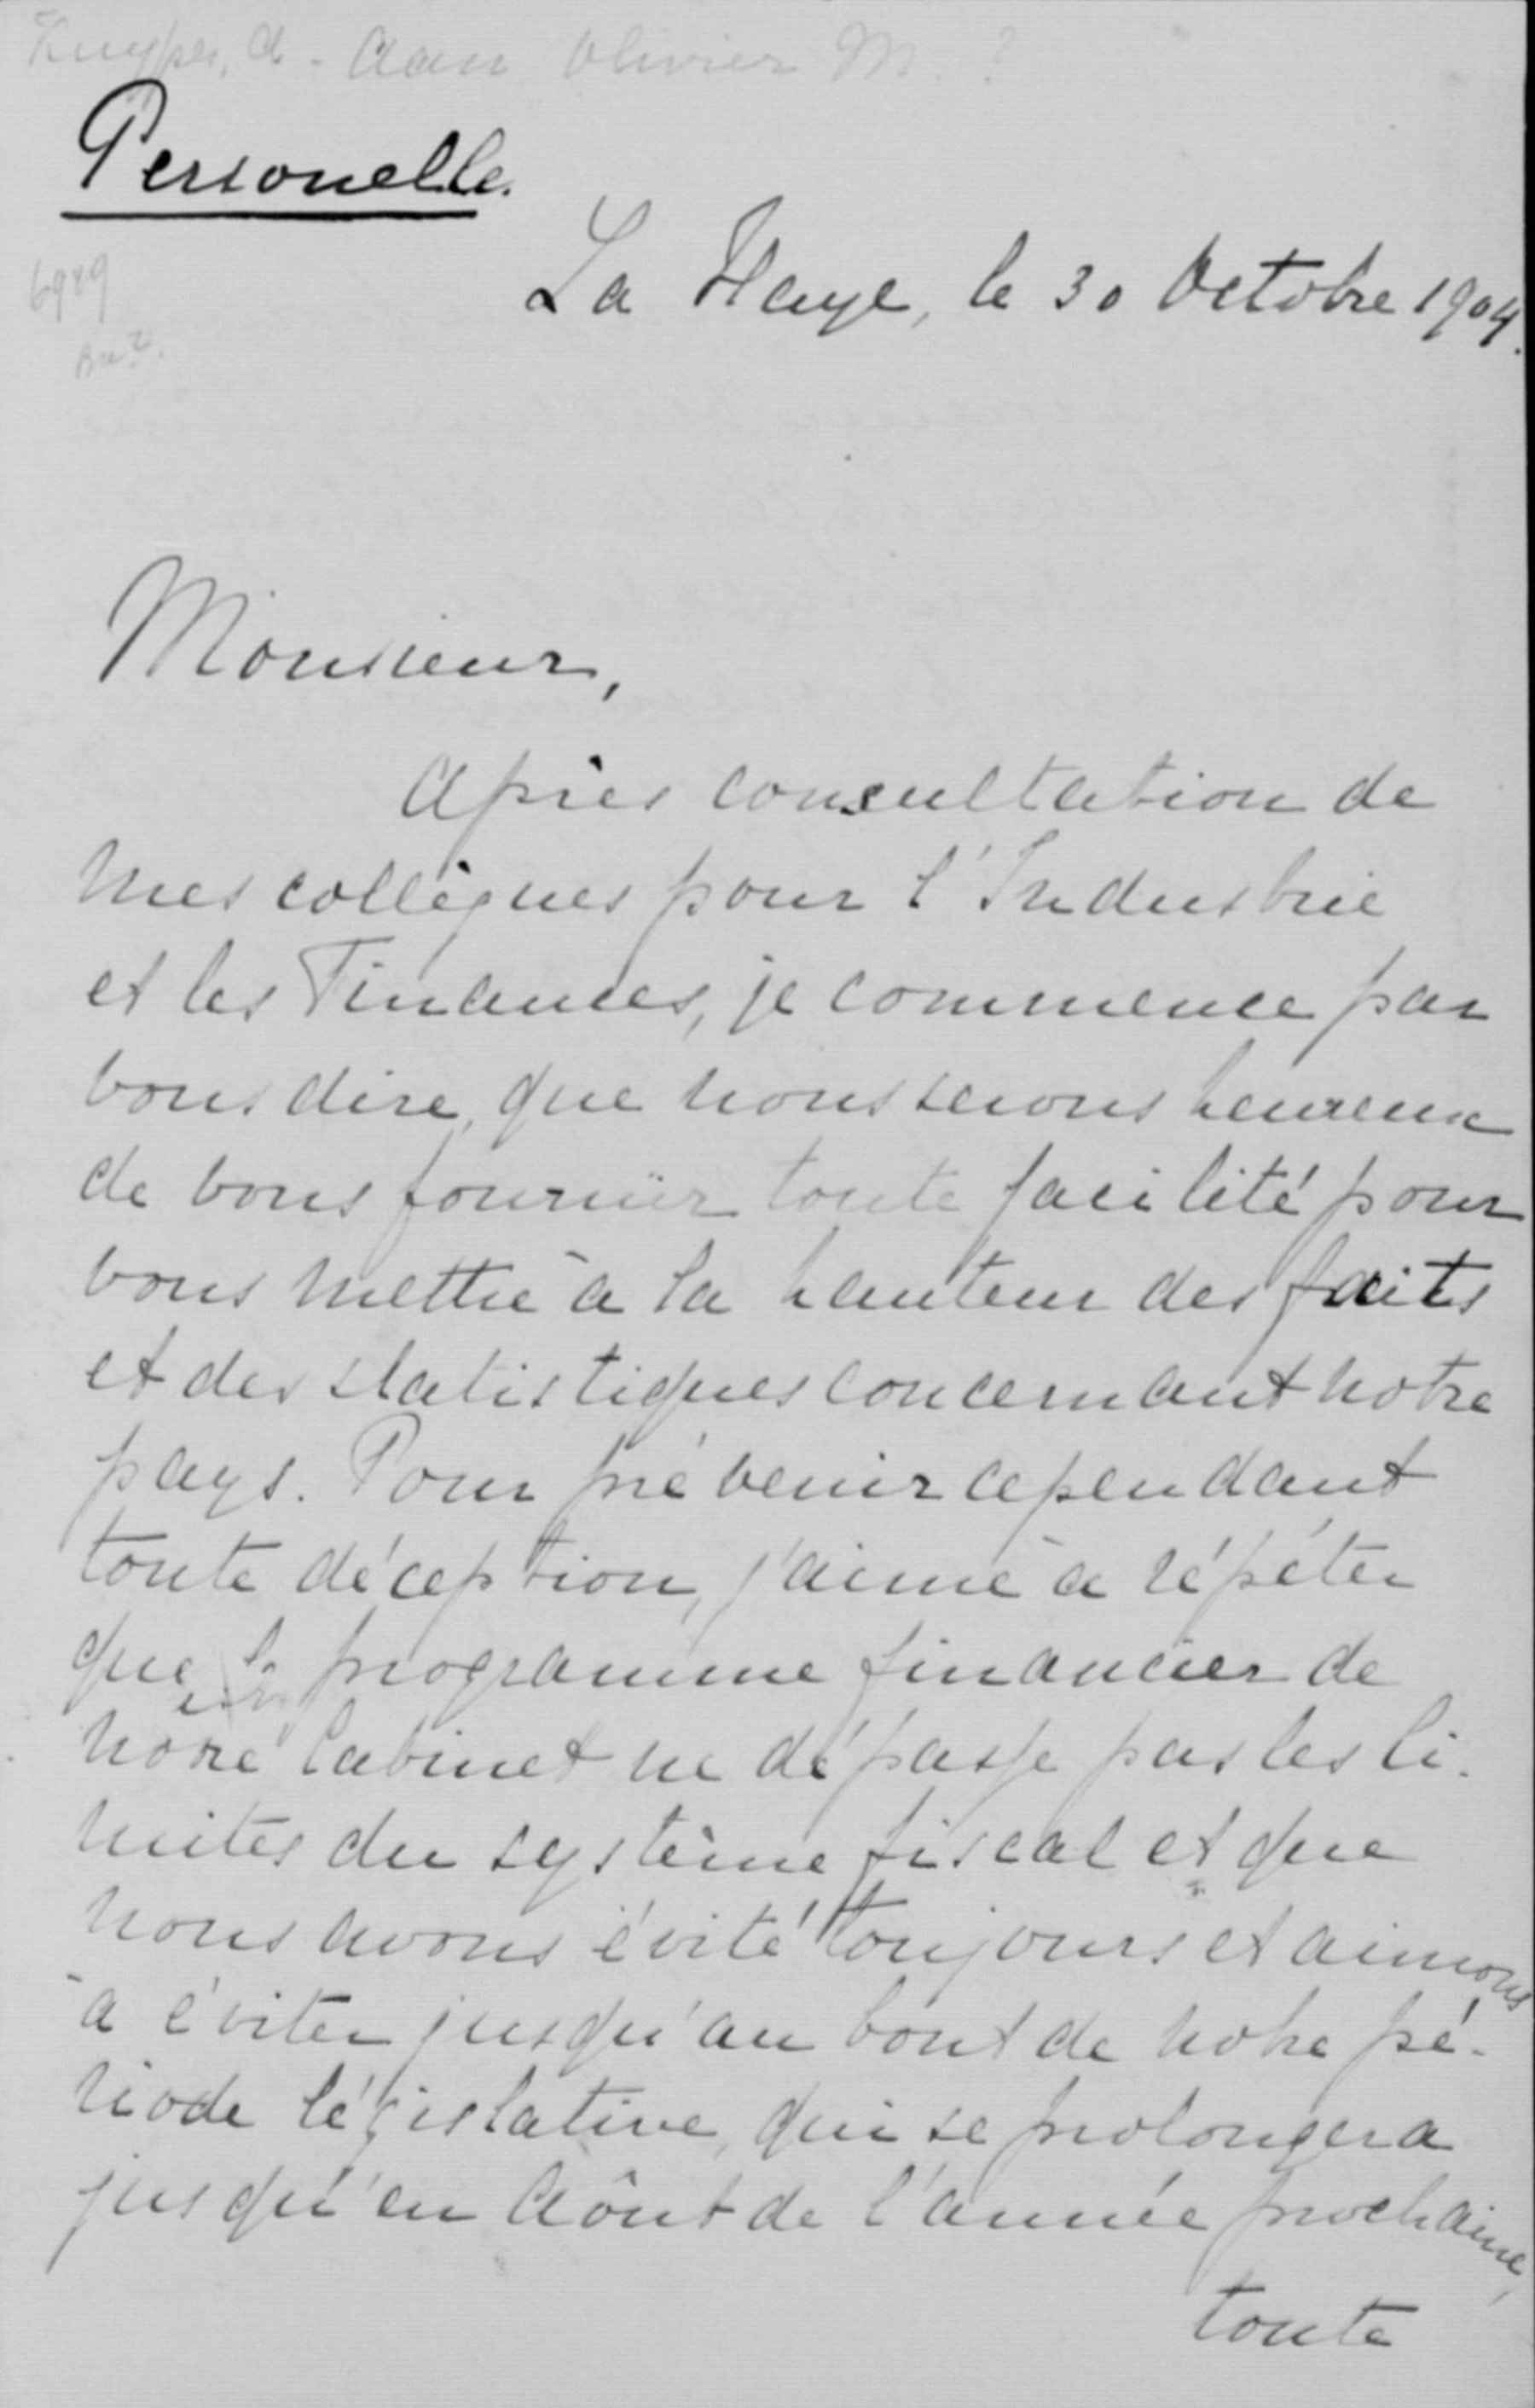 Kuyper, A. - Aan Olivier M. ?
Personelle.
La Haye, le 30 Octobre 1904.
6949
Monsieur,
Après consultation de
mes collègues pour l'Industrie
et les Finances, je commence par
vous dire, que nous serons heureux
de vous fournir toute facilité pour
vous mettre à la hauteur des faits
et des statistiques concernant notre
pays. Pour prévenir cependant
toute déception, j'aime à répéter
que le programme financier de
notre Cabinet ne dépasse pas les li-
mites du système fiscal et que
nous avons évité toujours et aimons
à éviter jusqu'au bout de notre pé-
riode législative, qui se prolongera
jusqu'en Août de l'année prochaine,
toute